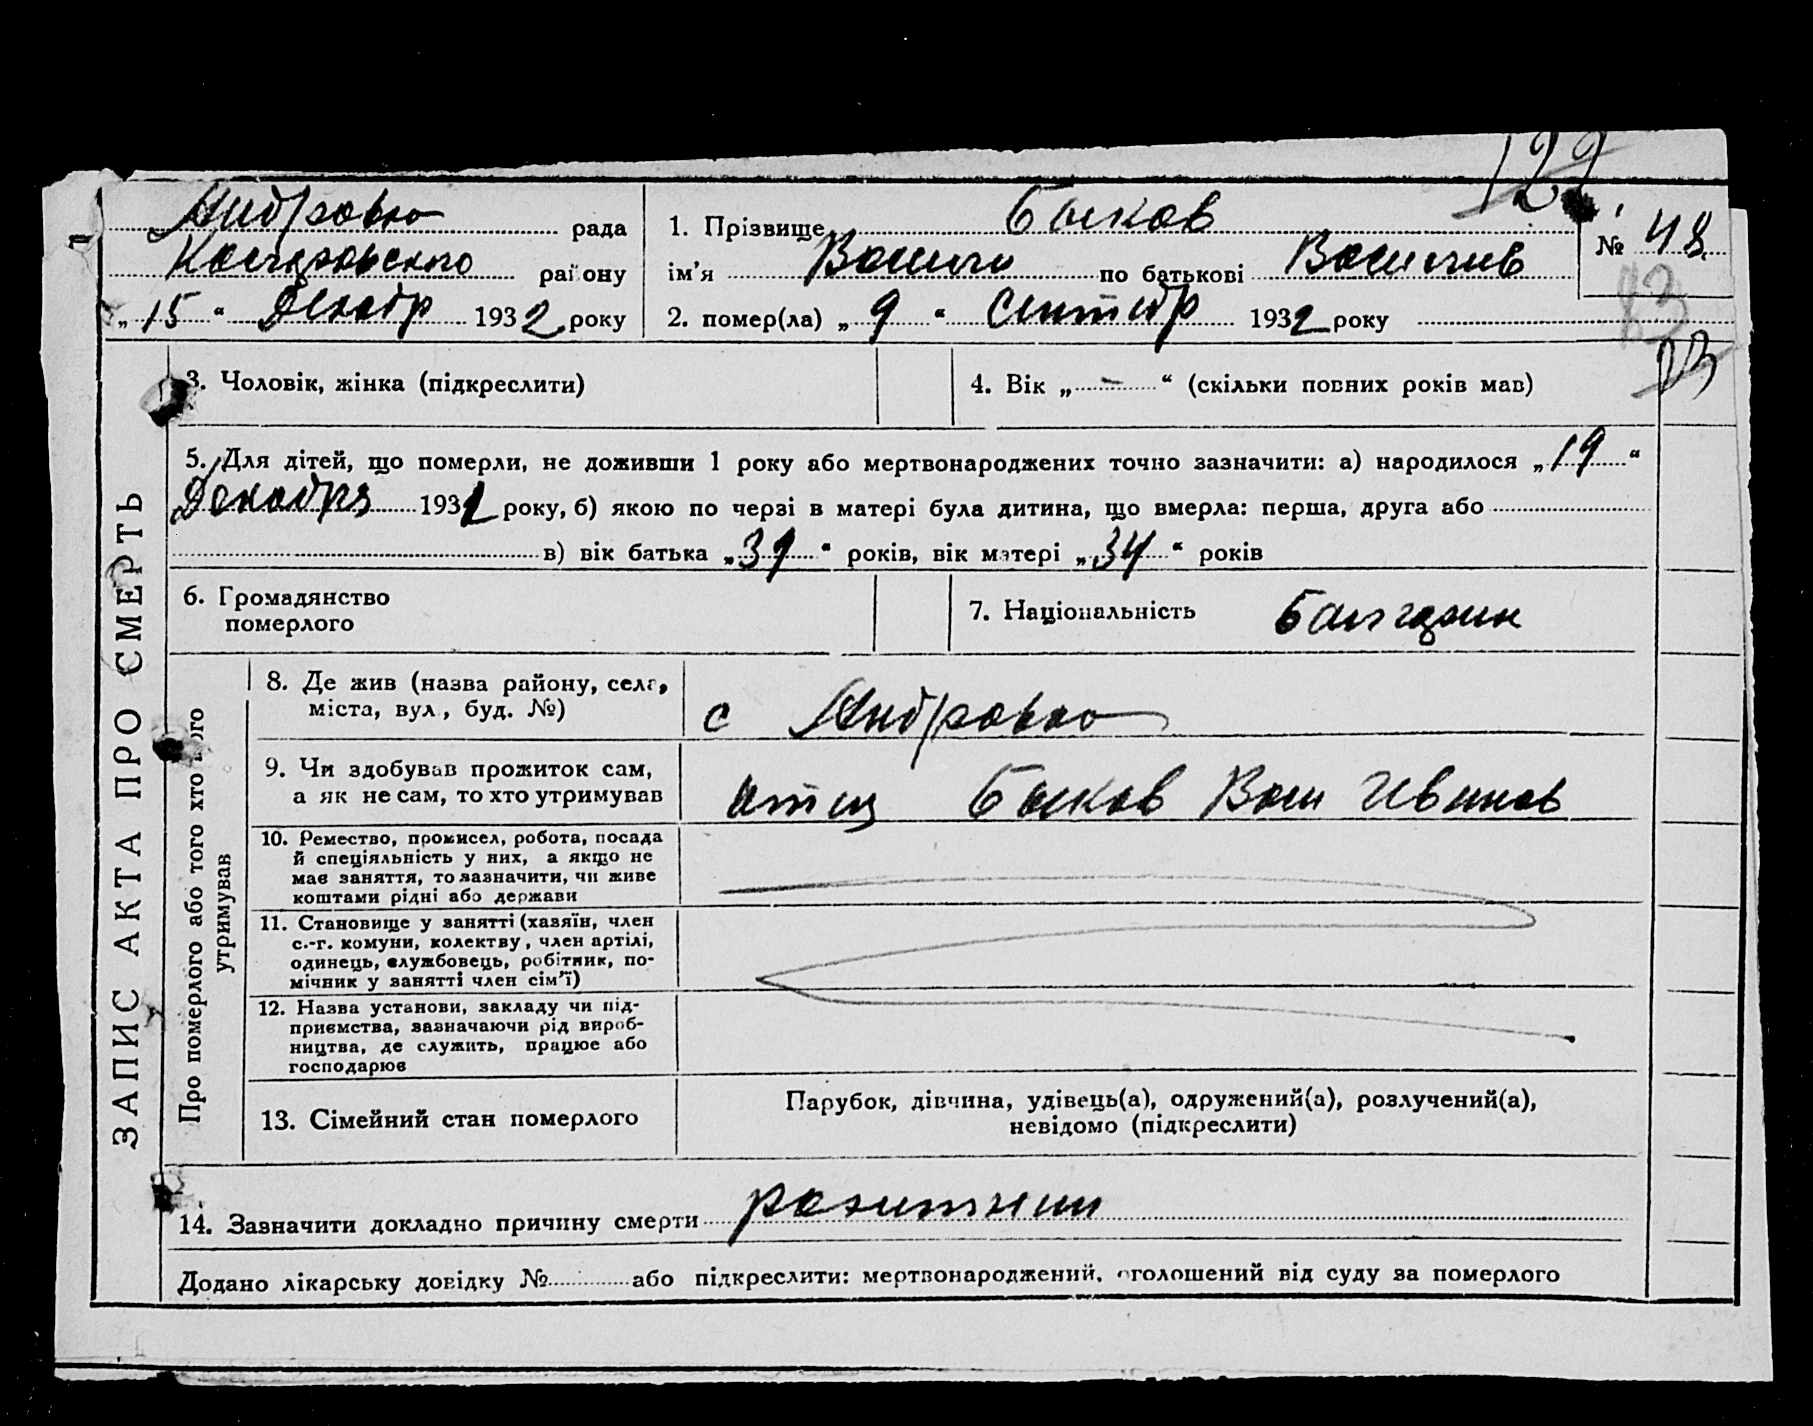 122
Андровко рада
району
„ 15 “ Декабр 1932 року
1. Прізвище Быков
№ 48
ім'я по батькові
2. помер(ла) „ 9 “ 1932 року
83
83
ЗАПИС АКТА ПРО СМЕРТЬ
3. Чоловік, жінка (підкреслити)
4. Вік „ – “ (скільки повних років мав)
5. Для дітей, що померли, не доживши 1 року або мертвонароджених точно зазначити: а) народилося „ 19 “
Декабря 1931 року, б) якою по черзі в матері була дитина, що вмерла: перша, друга або
в) вік батька „ 39 “ років, вік матері „ 34 “ років
6. Громадянство
померлого
7. Національність Балгарин
Про померлого або того хто його
утримував
8. Де жив (назва району, села,
міста, вул., буд. №)
с Андровко
9. Чи здобував прожиток сам,
а як не сам, то хто утримував
отец Быков Васи Иванов
10. Ремество, промисел, робота, посада
й спеціяльність у них, а якщо не
має заняття, то зазначити, чи живе
коштами рідні або держави
11. Становище у занятті (хазяїн, член
с.-г. комуни, колектву, член артілі,
одинець, службовець, робітник, по-
мічник у занятті член сім'ї)
12. Назва установи, закладу чи під-
приємства, зазначаючи рід вироб-
ництва, де служить, працює або
господарює
13. Сімейний стан померлого
Парубок, дівчина, удівець(а), одружений(а), розлучений(а),
невідомо (підкреслити)
14. Зазначити докладно причину смерти
Додано лікарську довідку № або підкреслити: мертвонароджений, оголошений від суду за померлого